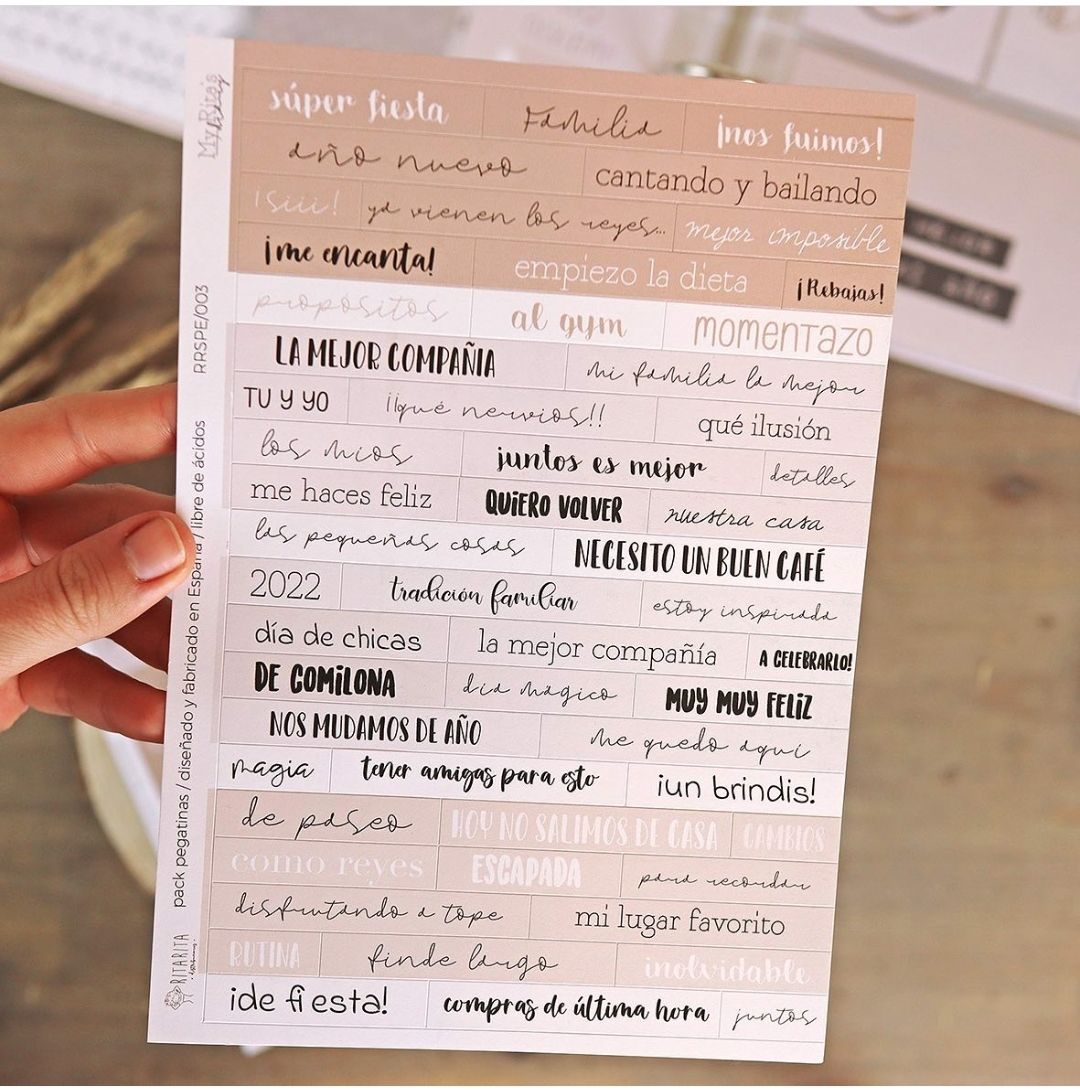 súper fiesta Familia ¡nos fuimos!
año nuevo cantando y bailando
¡Siii! ya vienen los reyes... mejor imposible
¡me encanta! empiezo la dieta ¡Rebajas!
propósitos al gym momentazo
LA MEJOR COMPAÑIA mi familia la mejor
TU Y YO ¡¡qué nervios!! qué ilusión
los mios juntos es mejor detalles
me haces feliz QUIERO VOLVER nuestra casa
las pequeñas cosas NECESITO UN BUEN CAFÉ
2022 tradición familiar estoy inspirada
día de chicas la mejor compañía A CELEBRARLO!
DE COMILONA día mágico MUY MUY FELIZ
NOS MUDAMOS DE AÑO me quedo aquí
magia tener amigas para esto ¡un brindis!
de paseo HOY NO SALIMOS DE CASA CAMBIOS
como reyes ESCAPADA para recordar
disfrutando a tope mi lugar favorito
RUTINA finde largo inolvidable
¡de fiesta! compras de última hora juntos
My Rita's
RRSPE/003
pack pegatinas / diseñado y fabricado en España / libre de ácidos
RITARITA